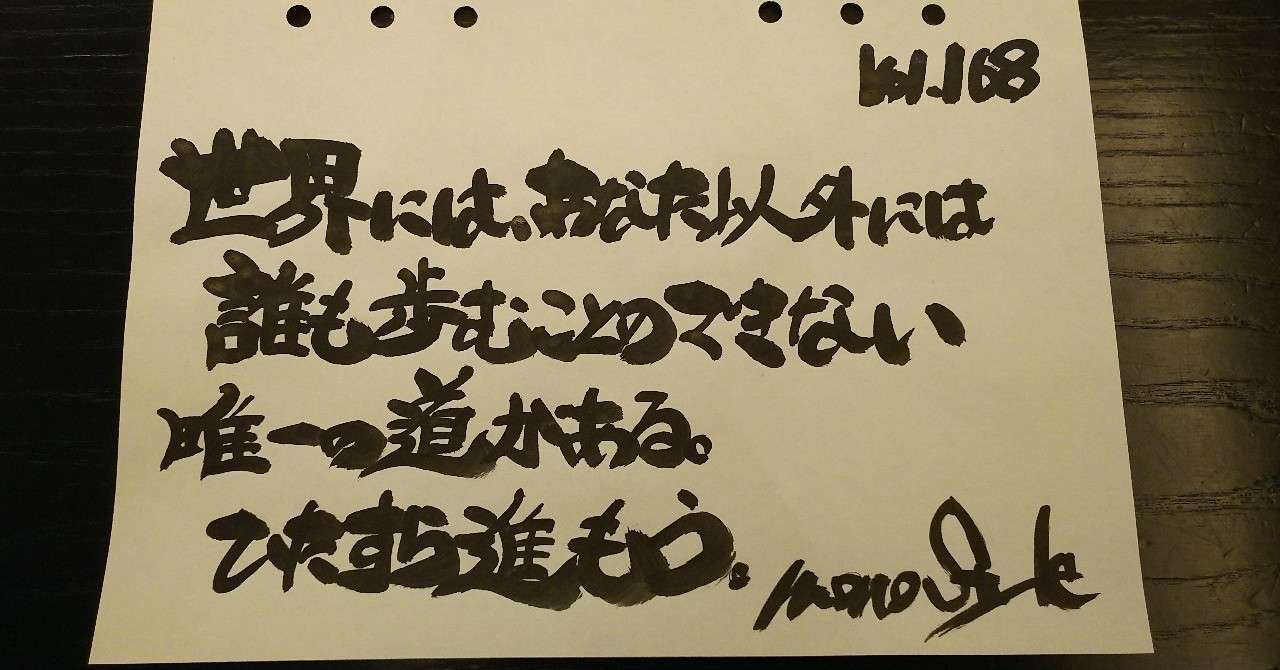 Vol.168
世界には、あなた以外には
誰も歩むことのできない
唯一の道がある。
ひたすら進もう。
mono Style